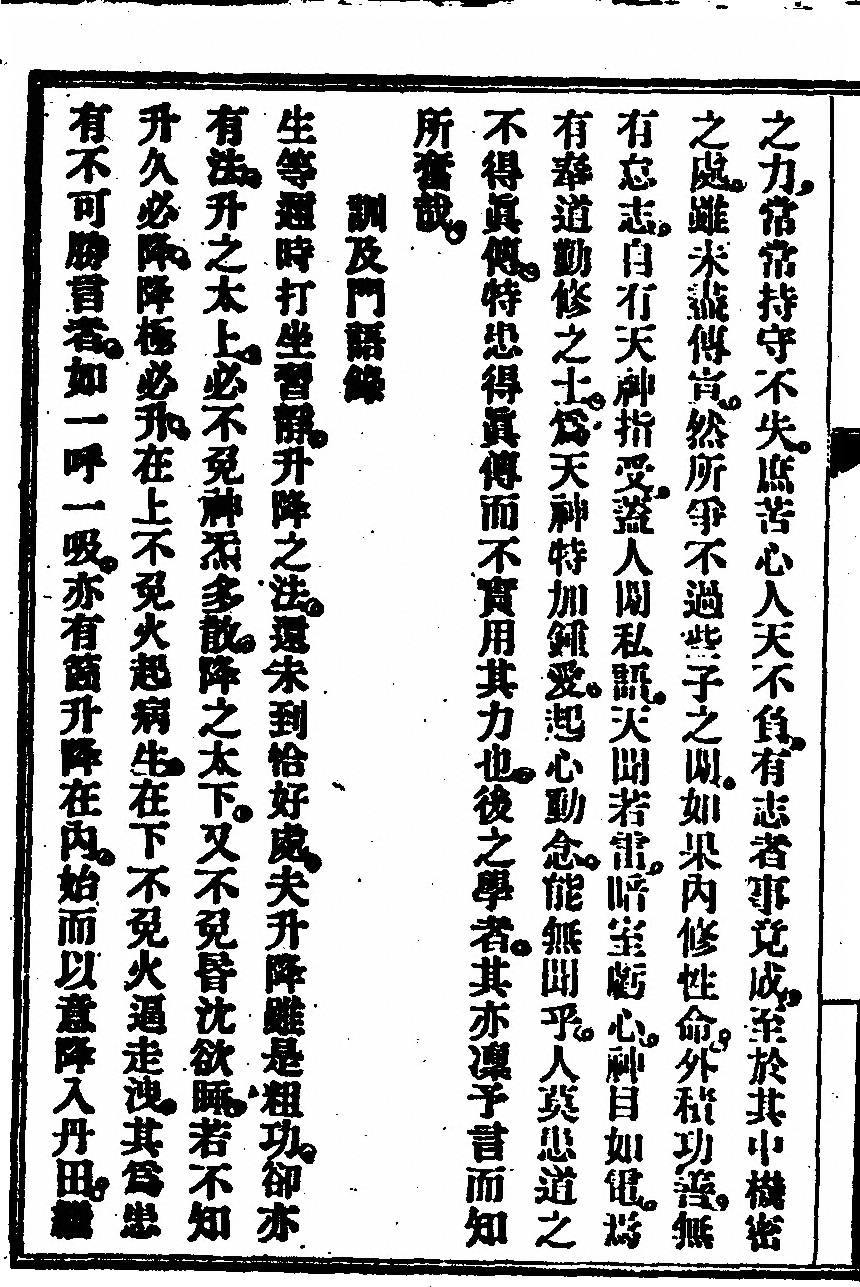 之力。常常持守不失。庶苦心人天不負。有志者事竟成。至於其中機密
之處。雖未盡傳宣。然所爭不過些子之間。如果內修性命。外積功善。無
有怠志。自有天神指受。蓋人間私語。天聞若雷。暗室虧心。神目如電。爲
有奉道勤修之士。爲天神特加鍾愛。起心動念。能無聞乎。人莫患道之
不得眞傳。特患得眞傳而不實用其力也。後之學者。其亦凜予言而知
所奮哉。
訓及門語錄
生等邇時打坐習靜。升降之法。還未到恰好處。夫升降雖是粗功。卻亦
有法。升之太上。必不免神炁多散。降之太下。又不免昏沈欲睡。若不知
升久必降。降極必升。在上不免火起病生。在下不免火逼走洩。其爲患
有不可勝言者。如一呼一吸。亦有箇升降在內。始而以意降入丹田。繼